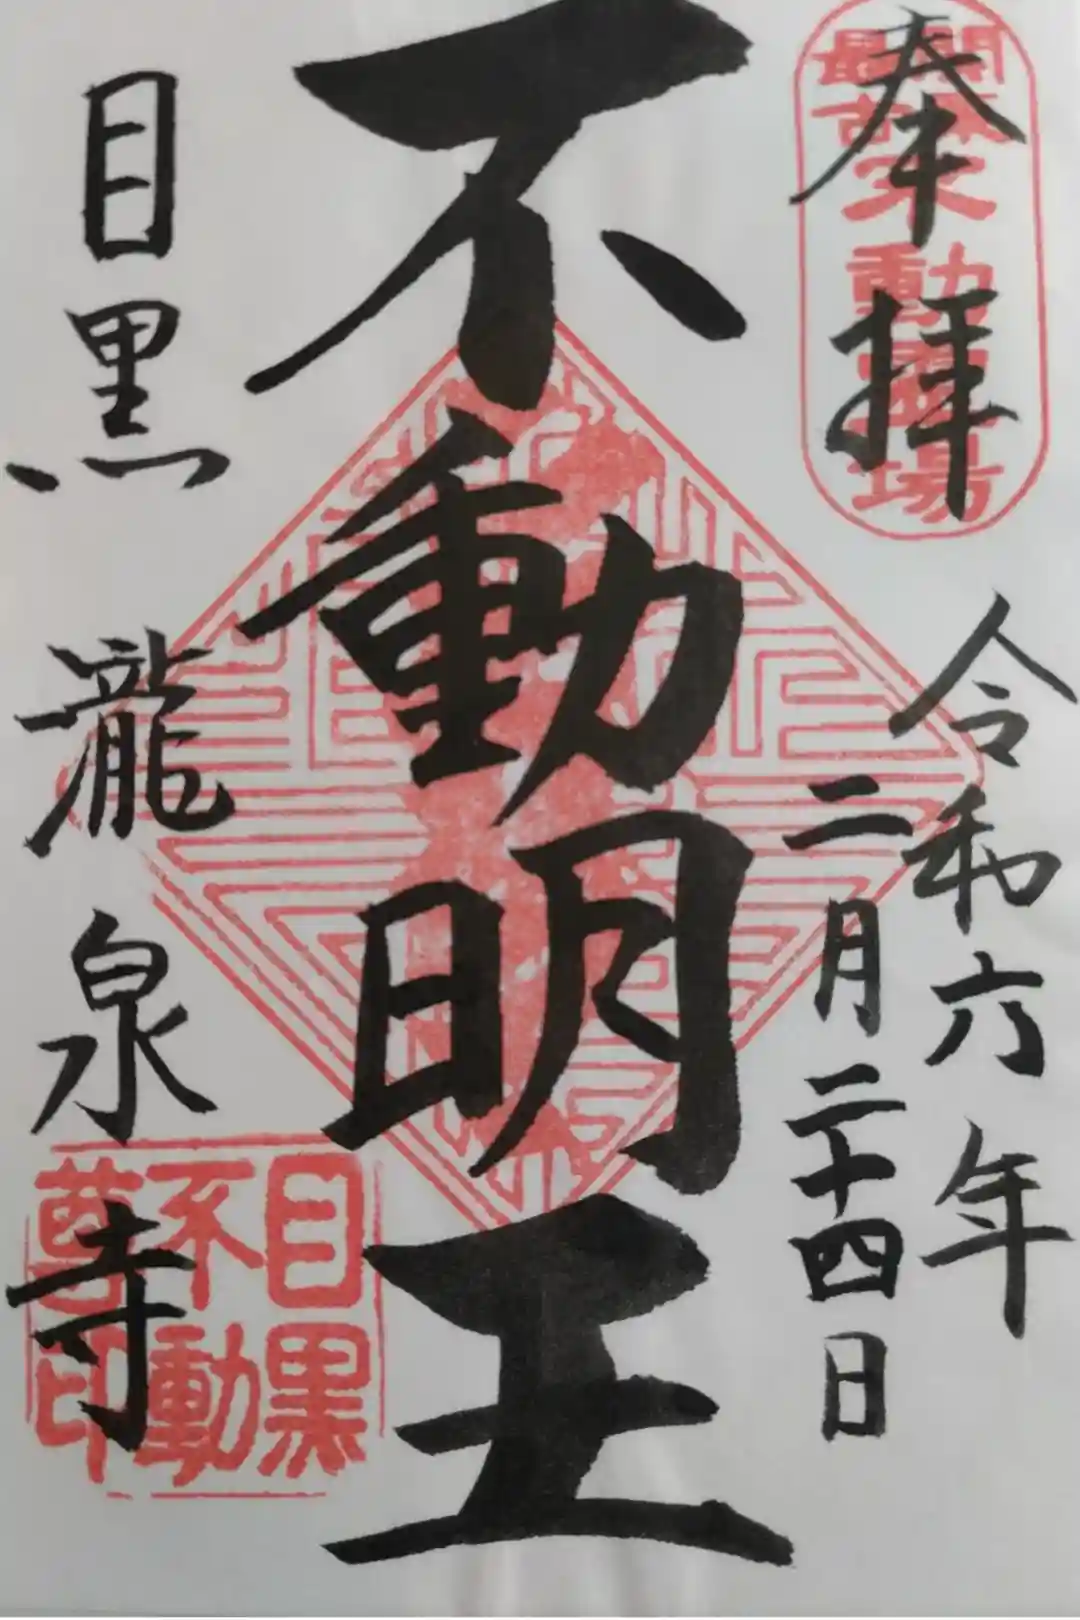 奉拝
関東最古不動霊場
令和六年
二月二十四日
不動明王
目黒
瀧泉寺
目黒不動尊印